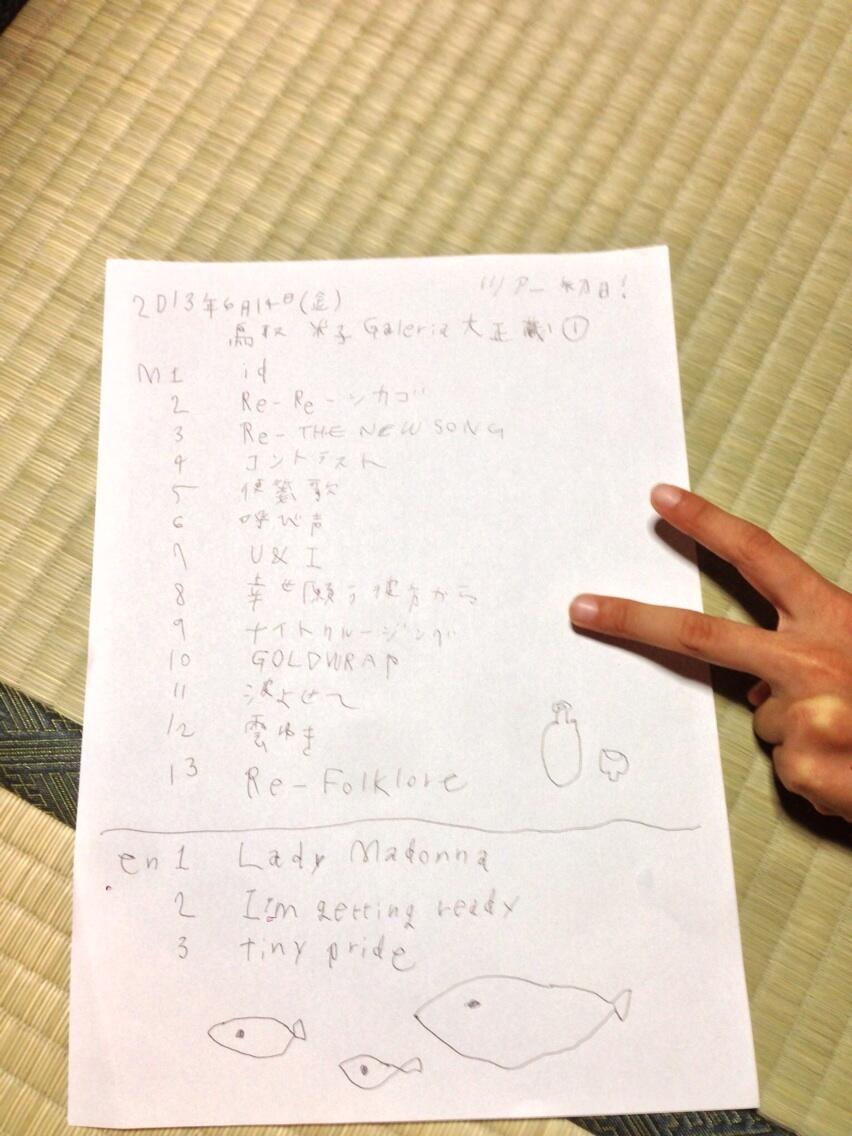 ツアー初日!
2013年6月14日(金)
鳥取 米子 Galeria 大正蔵 ①
M1 id
2 Re-Re-シカゴ
3 Re-THE NEW SONG
4 コントラスト
5 便箋歌
6 呼び声
7 U&I
8 幸せ願う彼方から
9 ナイトクルージング
10 GOLDWRAP
11 波よせて
12 雲ゆき
13 Re-Folklore
en1 Lady Madonna
2 I'm getting ready
3 tiny pride